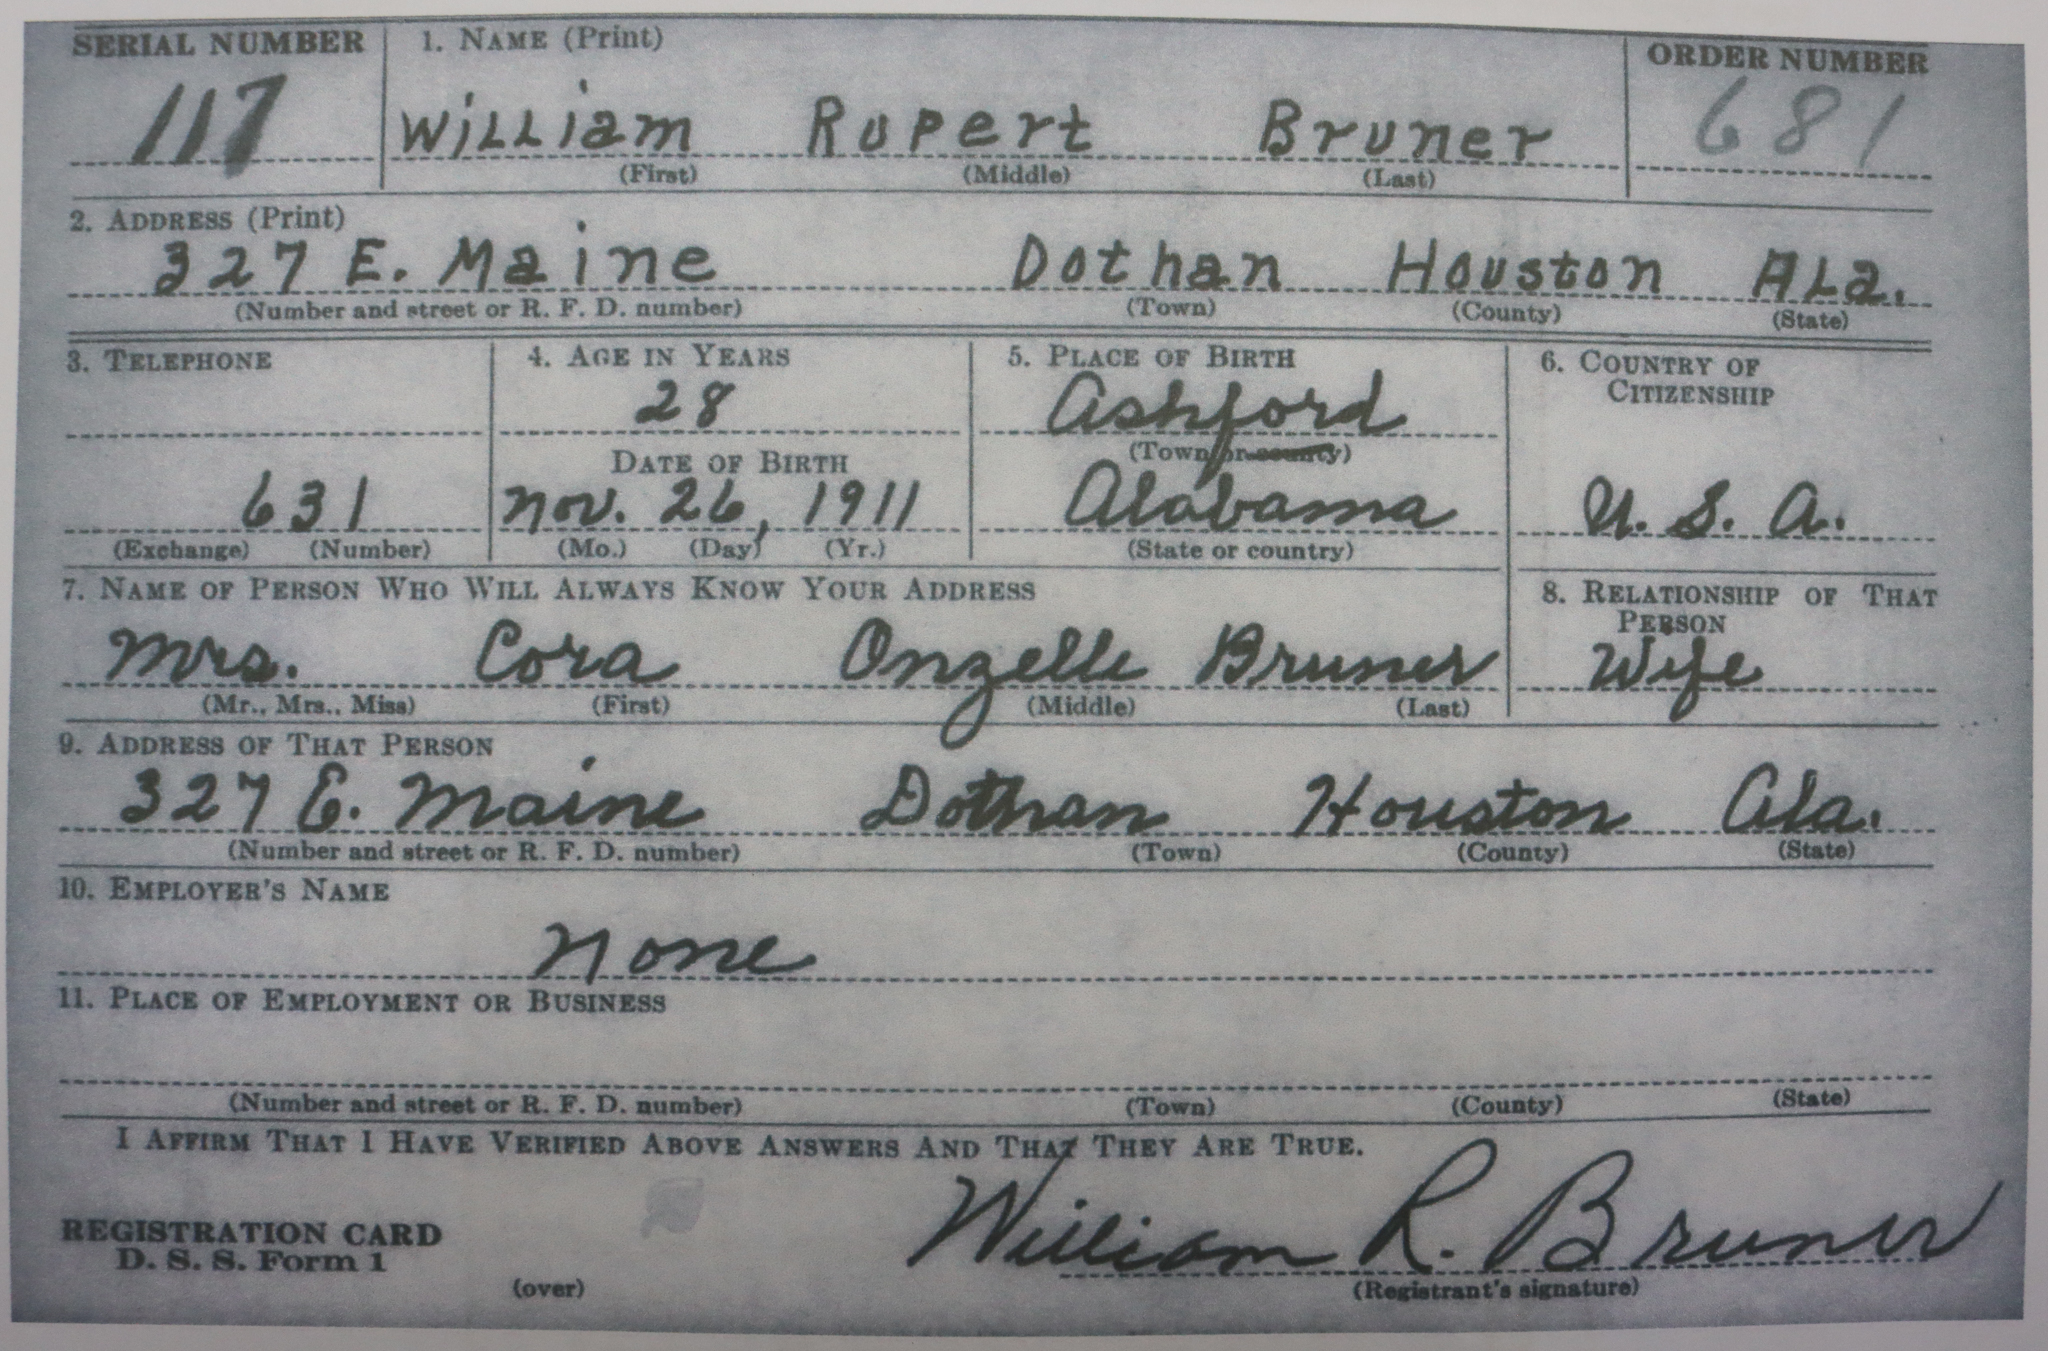 SERIAL NUMBER 1. NAME (Print) ORDER NUMBER
117 William Rupert Bruner 681
(First) (Middle) (Last)
2. ADDRESS (Print)
327 E. Maine Dothan Houston Ala.
(Number and street or R. F. D. number) (Town) (County) (State)
3. TELEPHONE 4. AGE IN YEARS 5. PLACE OF BIRTH 6. COUNTRY OF
CITIZENSHIP
28 Ashford
DATE OF BIRTH (Town or county)
631 Nov. 26, 1911 Alabama U. S. A.
(Exchange) (Number) (Mo.) (Day) (Yr.) (State or country)
7. NAME OF PERSON WHO WILL ALWAYS KNOW YOUR ADDRESS 8. RELATIONSHIP OF THAT
PERSON
Mrs. Cora Onzelle Bruner Wife
(Mr., Mrs., Miss) (First) (Middle) (Last)
9. ADDRESS OF THAT PERSON
327 E. Maine Dothan Houston Ala.
(Number and street or R. F. D. number) (Town) (County) (State)
10. EMPLOYER'S NAME
None
11. PLACE OF EMPLOYMENT OR BUSINESS
(Number and street or R. F. D. number) (Town) (County) (State)
I AFFIRM THAT I HAVE VERIFIED ABOVE ANSWERS AND THAT THEY ARE TRUE.
REGISTRATION CARD William R. Bruner
D. S. S. Form 1
(over) (Registrant's signature)